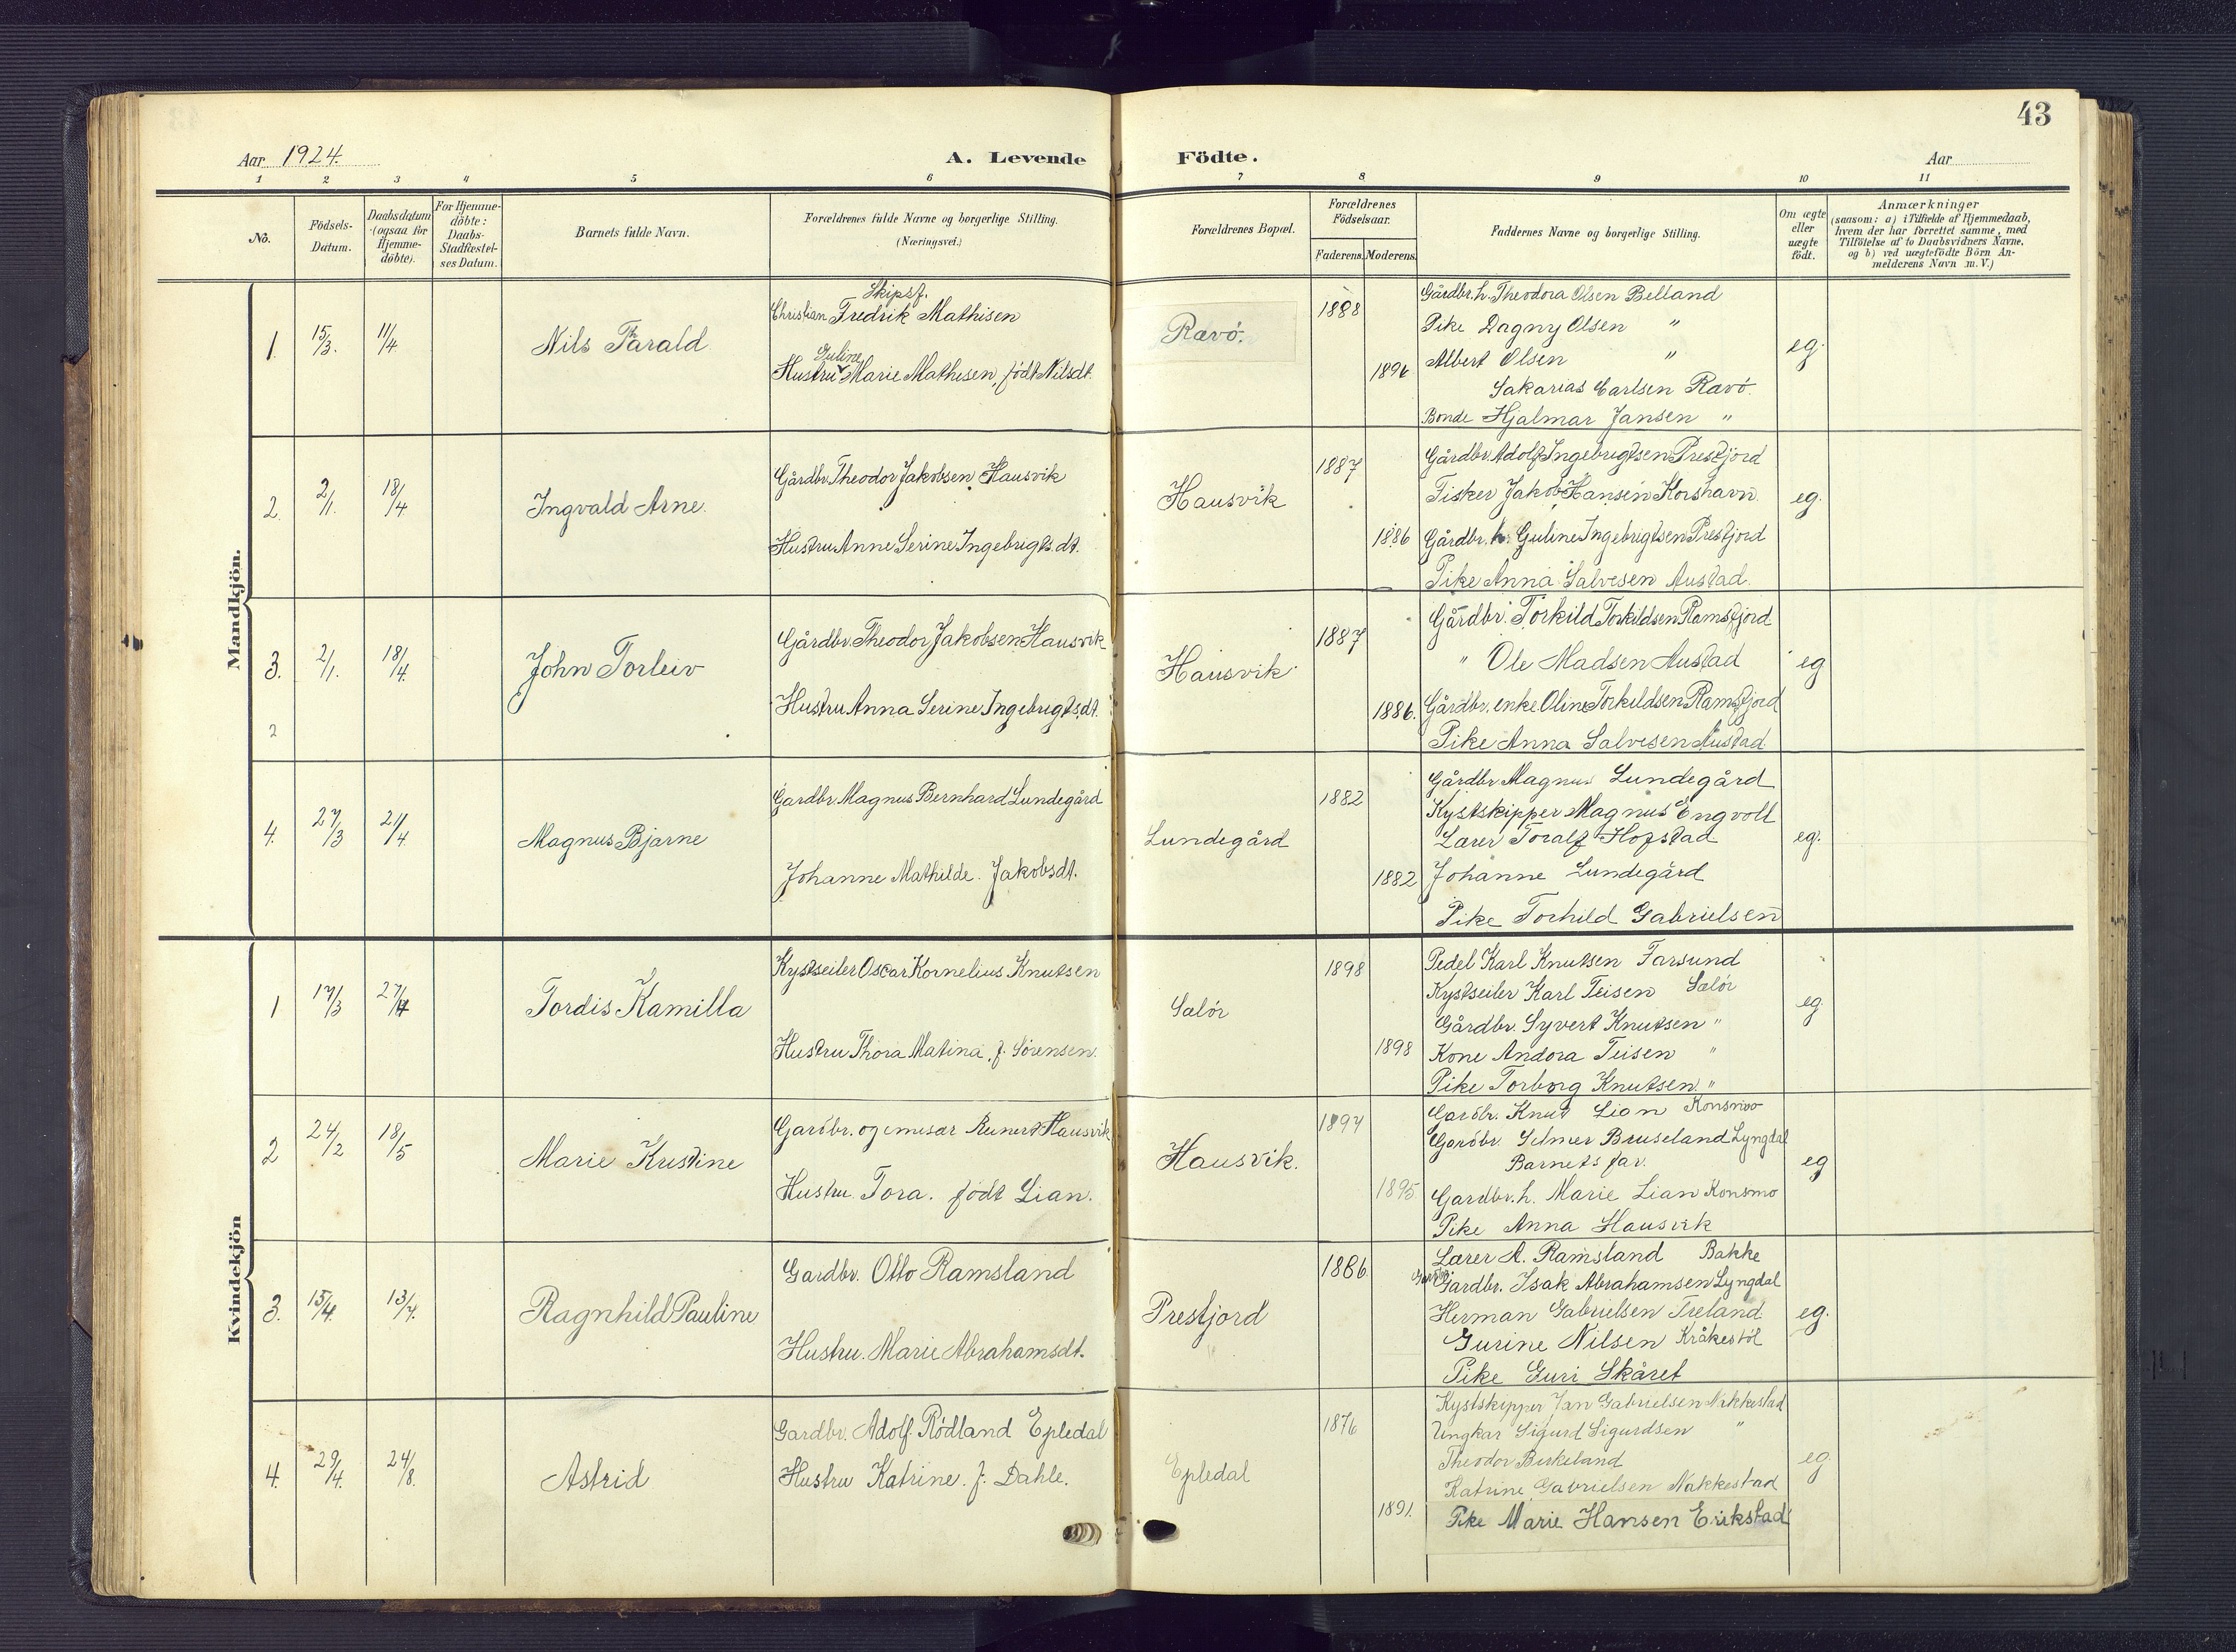 43
Aar 1924.
A. Levende Födte.
Aar
1 2 3 4 5 6 7 8 9 10 11
No.
Födsels-Datum.
Daabsdatum (ogsaa for Hjemme-döbte).
For Hjemme-döbte: Daabs-Stadfæstel-ses Datum.
Barnets fulde Navn.
Forældrenes fulde Navne og borgerlige Stilling.
(Næringsvei.)
Forældrenes Bopæl.
Forældrenes Födselsaar.
Faderens. Moderens.
Faddernes Navne og borgerlige Stilling.
Om ægte eller uægte födt.
Anmærkninger
(saasom: a) i Tilfælde af Hjemmedaab, hvem der har forrettet samme, med Tilföielse af to Daabsvidners Navne, og b) ved uægtefödte Börn Anmelderens Navn m. V.)
Mandkjön.
1. 15/3. 11/4 Nils Farald
Skipsf.
Christian Fredrik Mathisen
Guline
Hustru Marie Mathisen, født Nilsdt.
Ravø. 1888 1896
Gårdbr. h. Theodora Olsen Belland
Pike Dagny Olsen "
Albert Olsen "
Sakarias Carlsen Ravø.
Bonde Hjalmar Jansen "
eg.
2. 2/1. 18/4 Ingvald Arne.
Gårdbr. Theodor Jakobsen Hausvik
Hustru Anne Serine Ingebrigts.dt.
Hausvik 1887 1886
Gårdbr. Adolf Ingebrigtsen Presfjord
Fisker Jakob Hansen Korshavn
Gårdbr. h. Guline Ingebrigtsen Presfjord
Pike Anna Salvesen Austad.
eg.
3. 2/1. 18/4. John Torleiv
2
Gårdbr. Theodor Jakobsen Hausvik
Hustru Anna Serine Ingebrigtsdt.
Hausvik 1887 1886.
Gårdbr. Torkild Torkildsen Ramsfjord
" Ole Madsen Austad
Gårdbr. enke Oline Torkildsen Ramsfjord
Pike Anna Salvesen Austad
eg
4. 27/3 21/4. Magnus Bjarne
Gardbr. Magnus Bernhard Lundegård
Johanne Mathilde Jakobsdt.
Lundegård 1882 1882
Gårdbr. Magnus Lundegård
Kystskipper Magnus Engvoll
Lærer Toralf Hofstad
Johanne Lundegård
Pike Torhild Gabrielsen
eg.
Kvindekjön
1 17/3 27/4 Tordis Kamilla
Kystseiler Oscar Kornelius Knutsen
Hustru Thora Matina f. Sörensen.
Sælör 1898 1898
Pedel Karl Knutsen Farsund
Kystseiler Karl Teisen Sælör
Gårdbr. Syvert Knutsen "
Kone Andora Teisen "
Pike Torborg Knutsen "
eg.
2 24/2 18/5 Marie Kristine
Gardbr. og emissær Reinert Hausvik
Hustru Tora. født Lian.
Hausvik. 1894 1895
Gardbr. Knut Lian Konsmo
Gardbr. Selmer Bruseland Lyngdal
Barnets far.
Gardbr. h. Marie Lian Konsmo
Pike Anna Hausvik
eg
3. 15/4. 13/7. Ragnhild Pauline
Gardbr. Otto Ramsland
Hustru. Marie Abrahamsdt.
Presfjord 1886
Lærer A. Ramsland Bakke
Gardbr. Isak Abrahamsen Lyngdal
Herman Gabrielsen Treland
Gurine Nilsen Kråkestöl
Pike Guri Skåret
eg.
4. 29/4. 24/8. Astrid
Gardbr. Adolf Rödland Epledal
Hustru Katrine. f. Dahle.
Epledal 1876 1891.
Kystskipper Jan Gabrielsen Nakkestad
Ungkar Sigurd Sigurdsen "
Theodor Birkeland
Katrine Gabrielsen Nakkestad
Pike Marie Hansen Eikstad
eg.